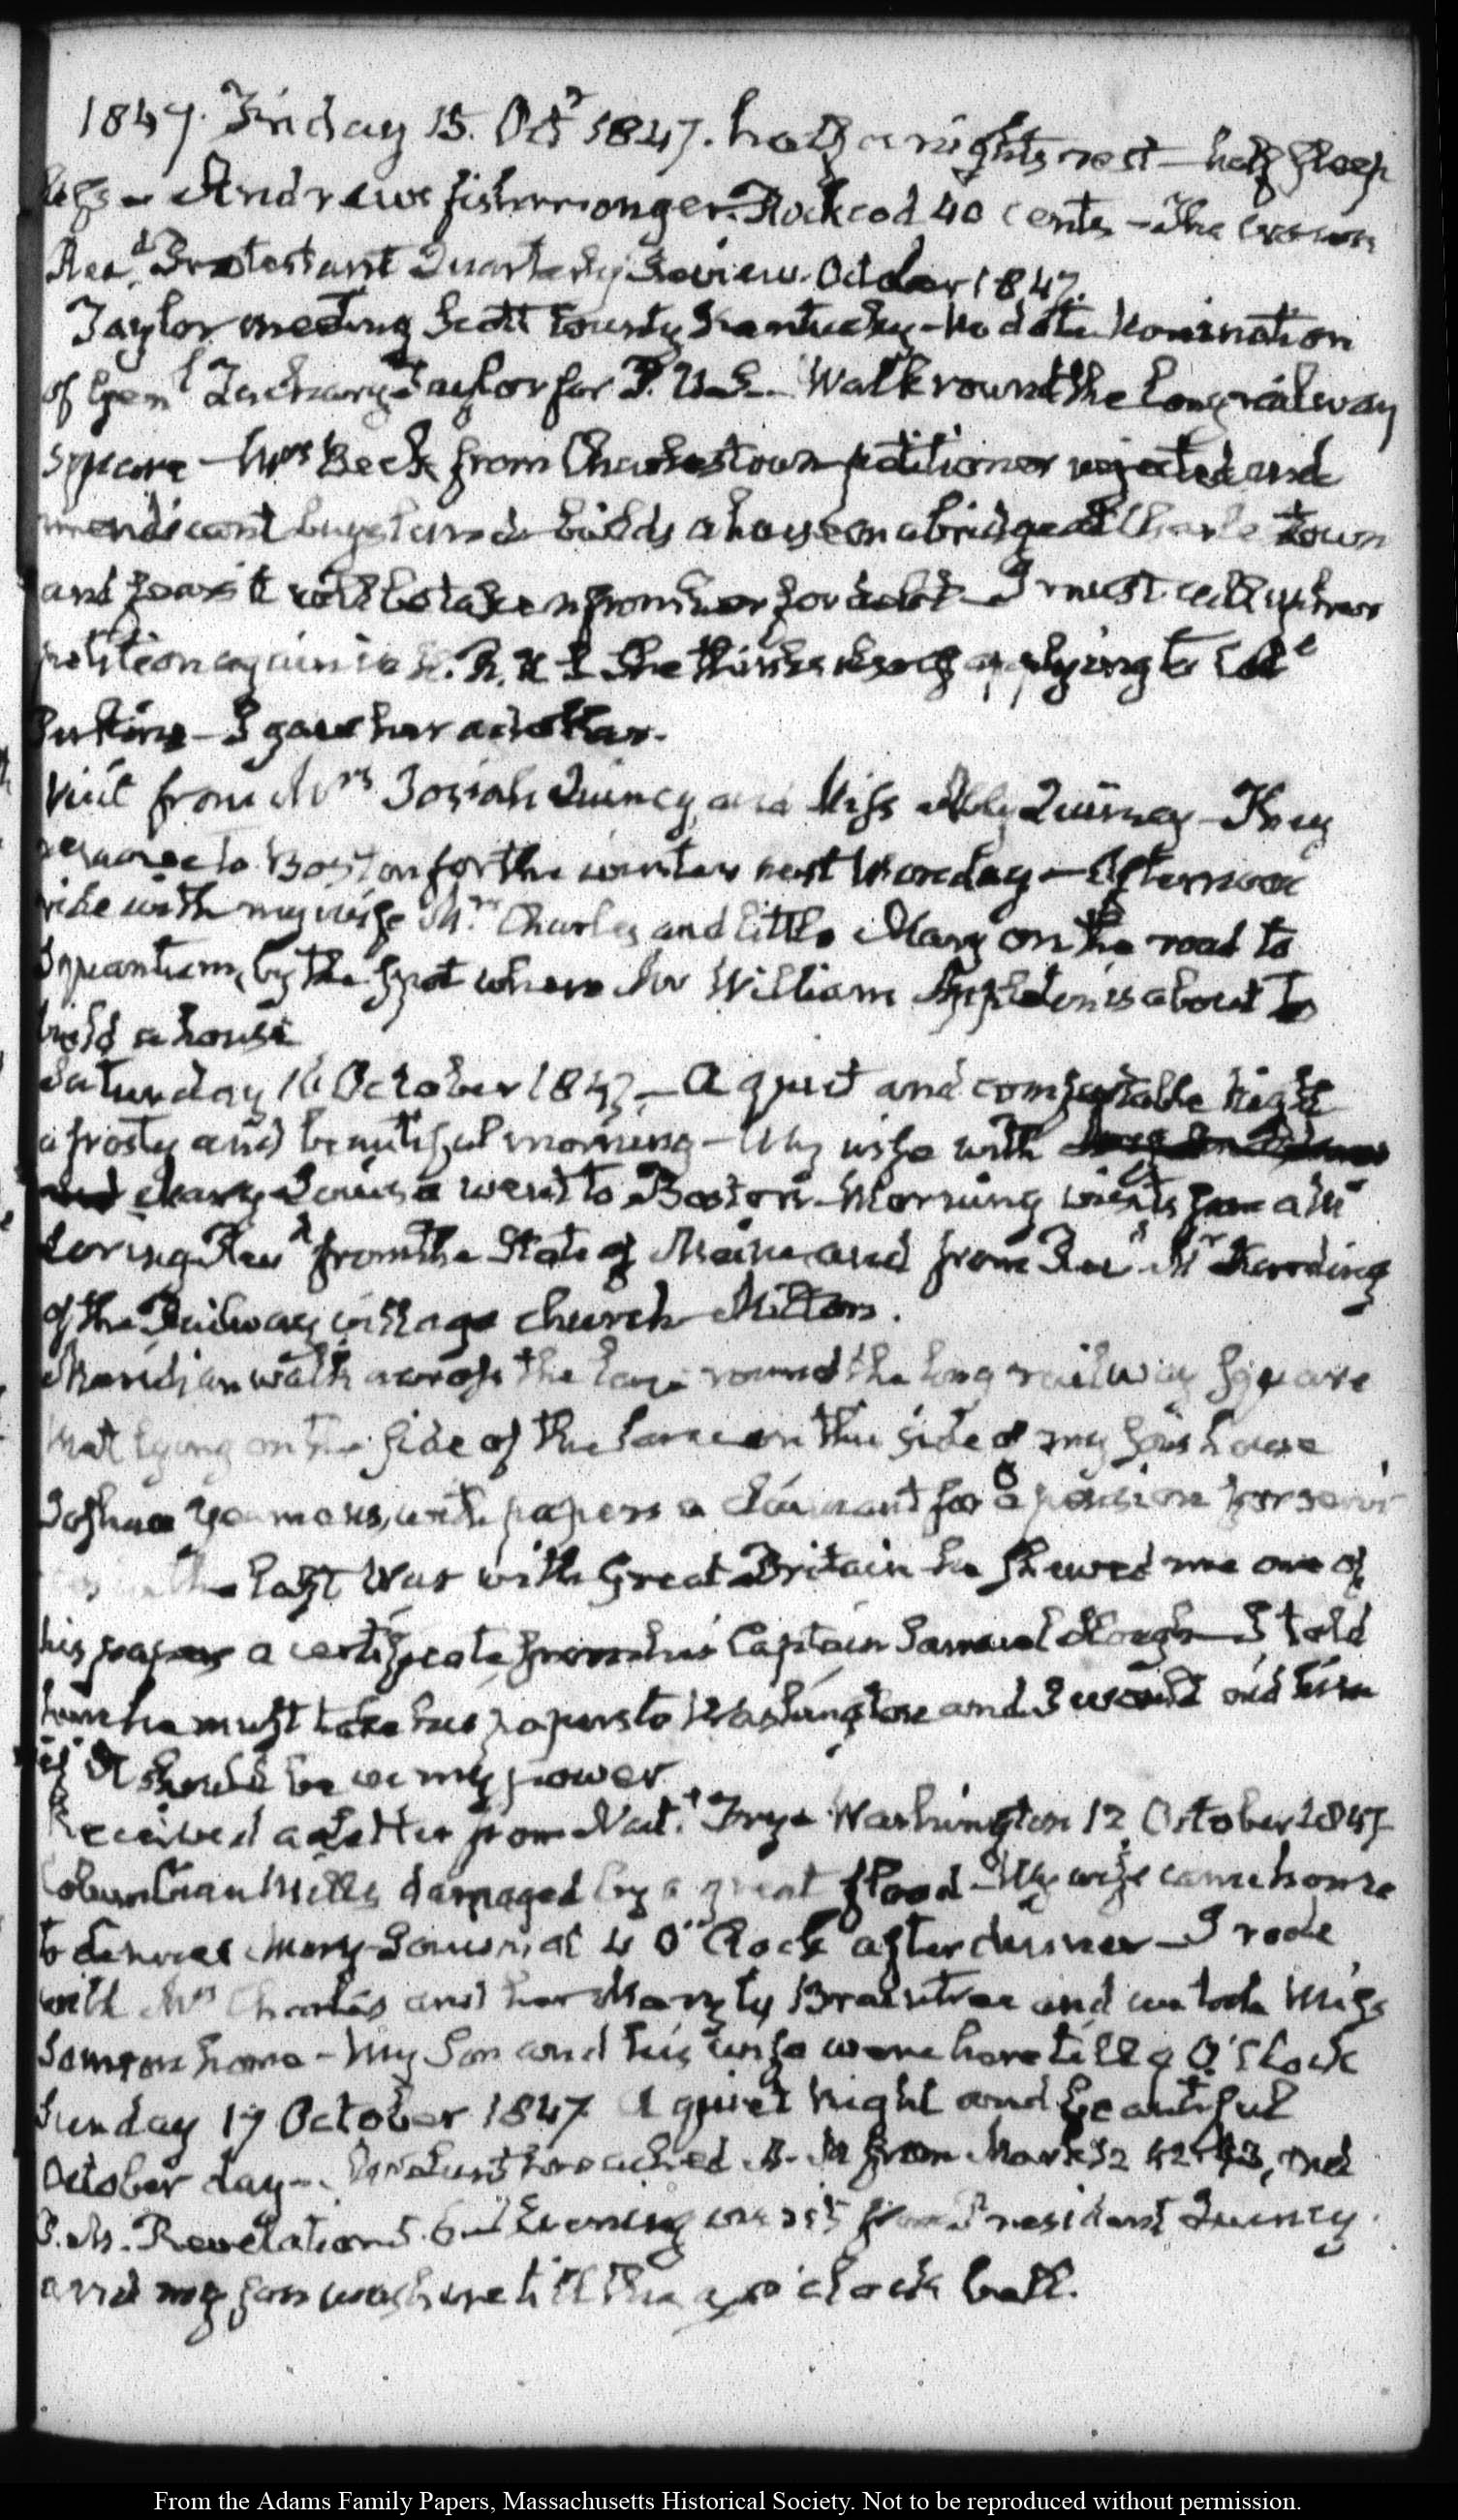 1847. Friday 15. Octr 1847. half a nights rest — half sleep
less — Andrews fishmonger. Rock cod 40 cents — The
Recd. Protestant Quarterly Review. October 1847.
Taylor meeting Scott County Kentucky — No date. Nomination
of Genl Zachary Taylor for P. U.S. — Walk round the long railway
square — Mrs Beck from Charlestown petitioner rejected and
mendicant builds a house on a bridge at Charlestown
and fears it will be taken from her for debt — I must call up her
petition again in H. R. U S She thinks of applying to Coll
Perkins — I gave her a dollar.
Visit from Mrs Josiah Quincy, and Miss Abby Quincy — They
remove to Boston for the winter next Monday — Afternoon
ride with my wife Mrs Charles and little Mary on the road to
Squantum, by the spot where Mr William Appleton is about to
build a house
Saturday 16 October 1847. — A quiet and comfortable night
a frosty and beautiful morning — My wife with
Mary Louisa went to Boston — Morning visits from a Mr
Loring Revd from the State of Maine and from Revd Mr Harding
of the Railway village church Milton.
Meridian walk across the lane round the long railway square
Mat lying on the side of the lane on this side of my son's house
Joshua Yeomans, with papers a claimant for a pension for
the last War with Great Britain he shewed me one of
his papers a certificate from his Captain Samuel — I told
him he must take his papers to Washington and I would aid him
if it should be in my power
Received a Letter from Natl. Frye Washington 12 October 1847
Columbian Mills damaged by a great flood — My wife came home
to dinner Mary Louisa at 4 O'Clock after dinner — I rode
with Mrs Charles and her Mary to Braintree and we took Miss
home — My Son and his wife were here till 9 O'Clock
Sunday 17 October 1847. A quiet night and beautiful
October day — Lunt preached A. M from Mark 12 42 43, and
P. M. Revelations 5. 6 — Evening visit from President Quincy.
and my son was here till the 9 o'clock bell.
From the Adams Family Papers, Massachusetts Historical Society. Not to be reproduced without permission.